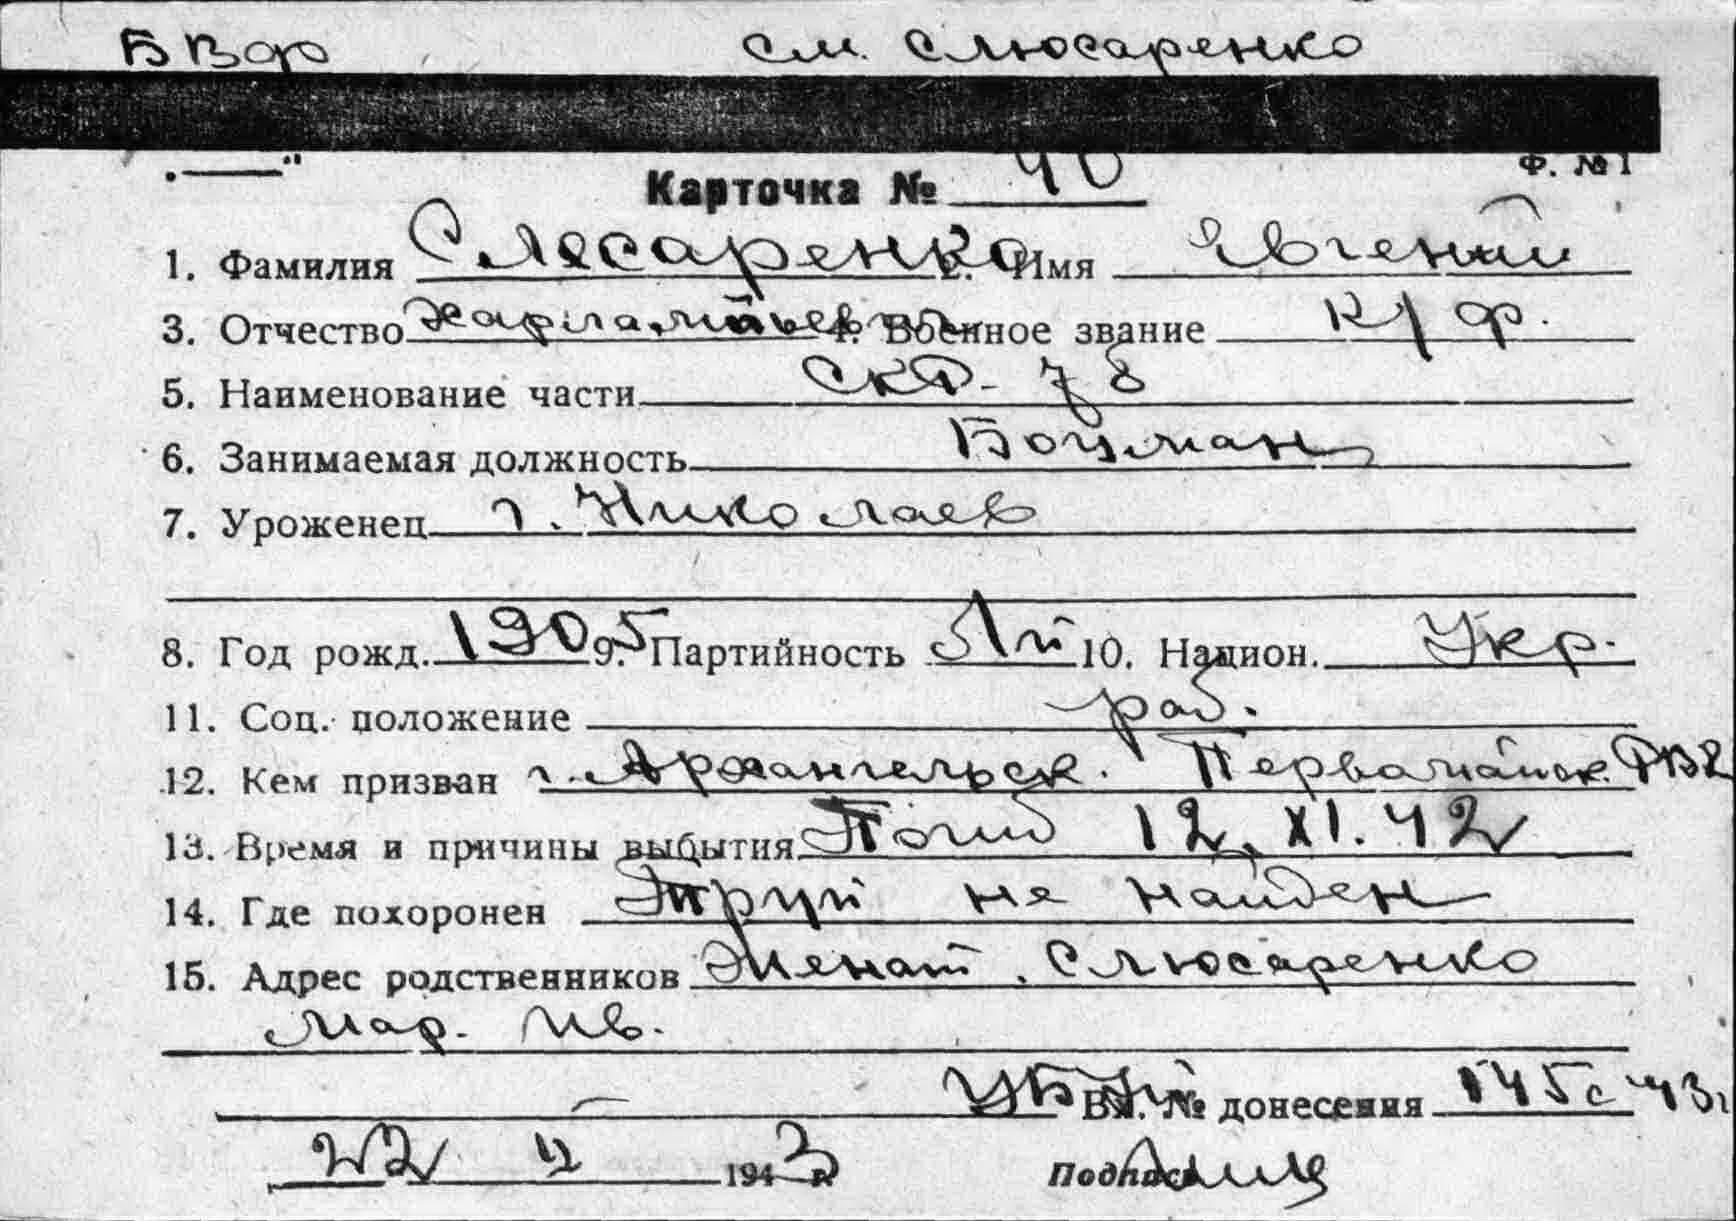 БВФ см. Слюсаренко
Ф. № 1
Карточка № 40
1. Фамилия Слесаренко 2. Имя Евгений
3. Отчество Харлампьев. 4. Военное звание к/ф.
5. Наименование части СКР-78
6. Занимаемая должность Боцман
7. Уроженец г. Николаев
8. Год рожд. 1905 9. Партийность 10. Национ. Укр.
11. Соц. положение раб.
12. Кем призван г. Архангельск. Первомайск. РВК
13. Время и причины выбытия Погиб 12.XI.42
14. Где похоронен Труп не найден
15. Адрес родственников Женат. Слюсаренко
Мар. Ив.
Вх. № донесения 145с 43г
22 4 1943 г.
Подпись